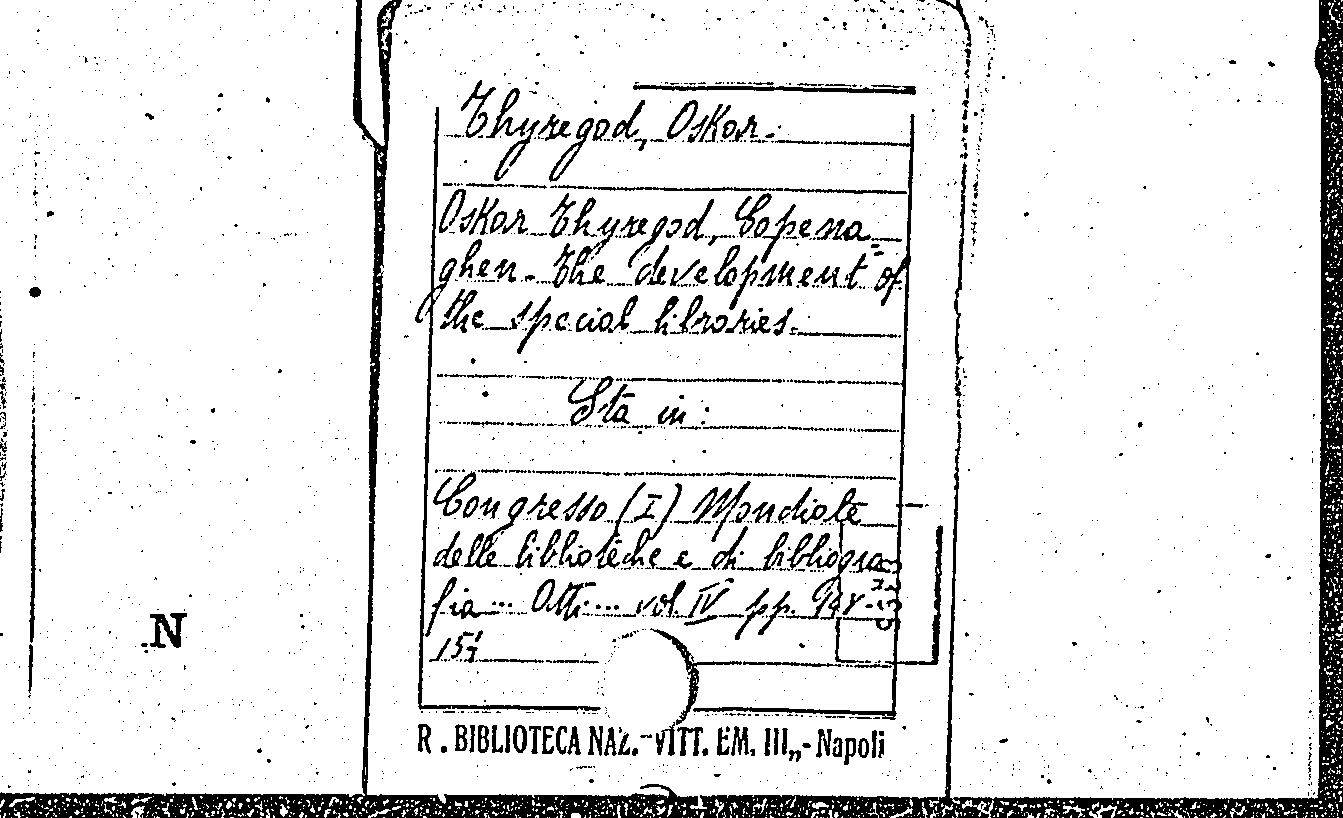 Thyregod, Oskar.
Oskar Thyregod, Copena-
ghen. The development of
the special libraries.
Sta in:
Congresso (I) Mondiale
delle biblioteche e di bibliogra
fia... Atti... vol. IV pp.
N
R. BIBLIOTECA NAZ. "VITT. EM. III„ - Napoli